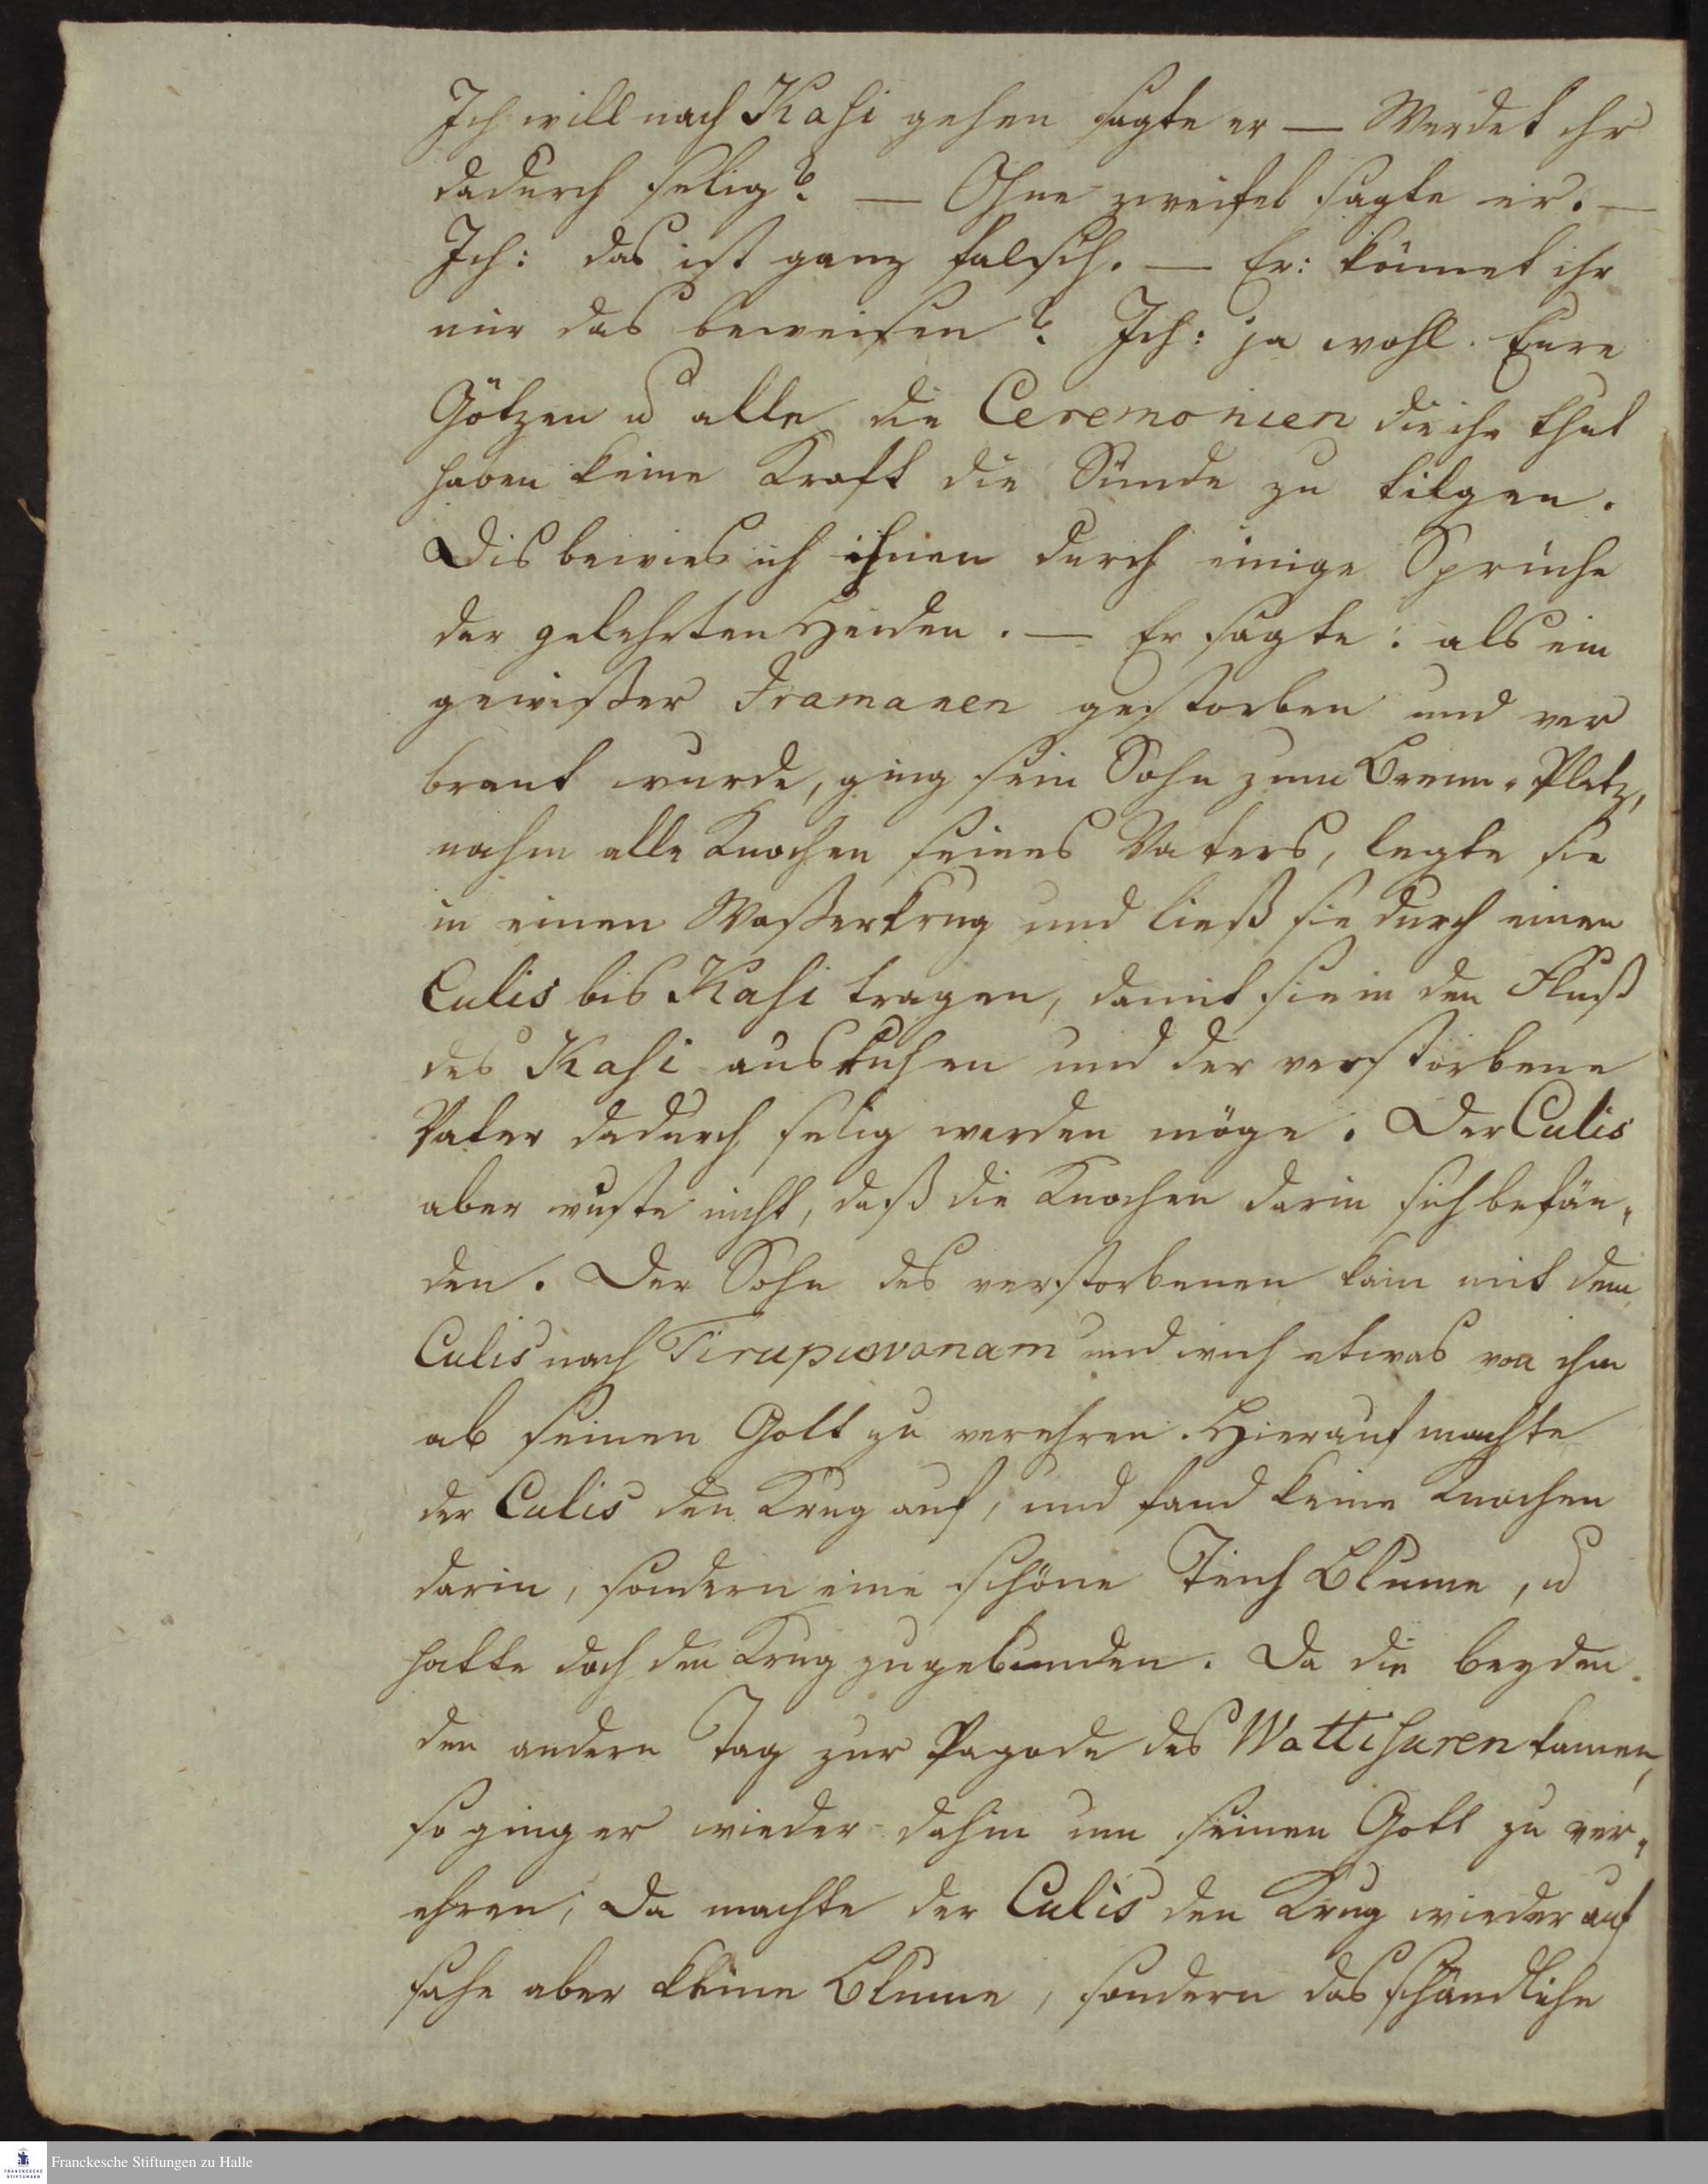 Ich will nach Kasi gehen sagte er — Werdet ihr
dadurch selig? — Ohne zweifel sagte er. —
Ich: das ist ganz falsch. — Er: könnet ihr
mir das beweisen? Ich: ja wohl. Eure
Götzen u alle die Ceremonien die ihr thut
haben keine Kraft die Sünde zu tilgen.
Dis bewies ich ihnen durch einige Sprüche
der gelehrten Heiden. — Er sagte: als ein
gewißer Iramanen gestorben und ver
brant wurde, ging sein Sohn zum Brenn-Platz,
nahm alle Knochen seines Vaters, legte sie
in einen Waßerkrug und ließ sie durch einen
Culis bis Kasi tragen, damit sie in den Fluß
des Kasi ausruhen und der verstorbene
Vater dadurch selig werden möge. Der Culis
aber wuste nicht, daß die Knochen darin sich befän-
den. Der Sohn des verstorbenen kam mit dem
Culis nach Tirupuwanam und wich etwas von ihm
ab seinen Gott zu verehren. Hierauf machte
der Culis den Krug auf, und fand keine Knochen
darin, sondern eine schöne Teich Blume, u
hatte doch den Krug zugebunden. Da die beyden
den andern Tag zur Pagode des Wattisuren kamen,
so ging er wieder dahin um seinen Gott zu ver-
ehren, Da machte der Culis den Krug wieder auf
sahe aber keine Blume, sondern das schändliche
Franckesche Stiftungen zu Halle